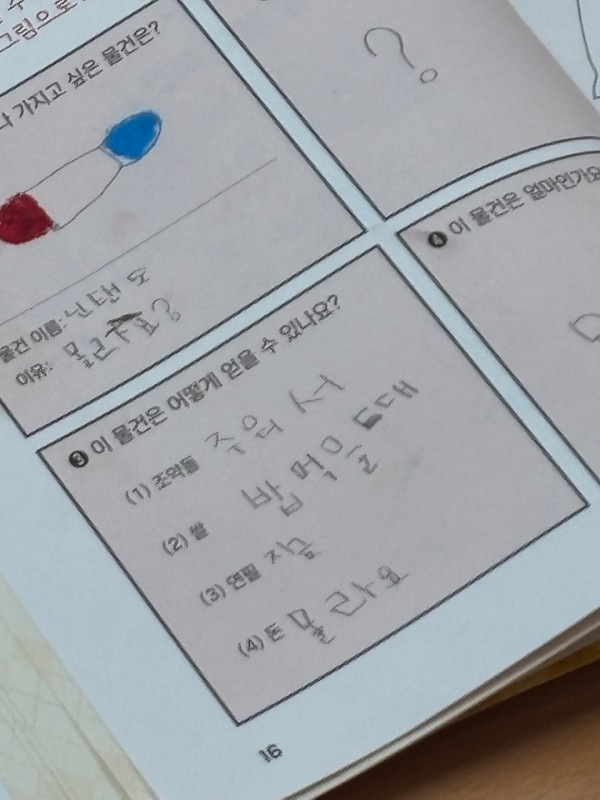 수
그림으로
나 가지고 싶은 물건은?
물건 이름: 닌텐도
이유: 몰라요?
?
❸ 이 물건은 어떻게 얻을 수 있나요?
(1) 조약돌 주워서
(2) 쌀 밥 먹을 때
(3) 연필 지금
(4) 돈 몰라요
❹ 이 물건은 얼마인가요
16